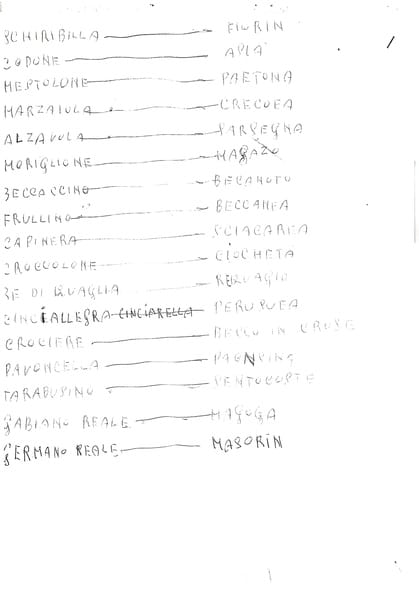 SCHIRIBILLA — FIURIN
CODONE — APLA
MESTOLONE — PAETONA
MARZAIOLA — CRECOEA
ALZAVOLA — SARSEGNA
MORIGLIONE — MAGAZO
BECCACCINO — BECANOTO
FRULLINO — BECCANEA
CAPINERA — SCIACAREA
CROCCOLONE — CIOCHETA
RE DI QUAGLIA — REQUAGIO
CINCIALLEGRA CINCIARELLA — PERUSOEA
CROCIERE — BECCO IN CROSE
PAVONCELLA
TARABUSINO
GABIANO REALE — MAGOGA
GERMANO REALE — MASORIN